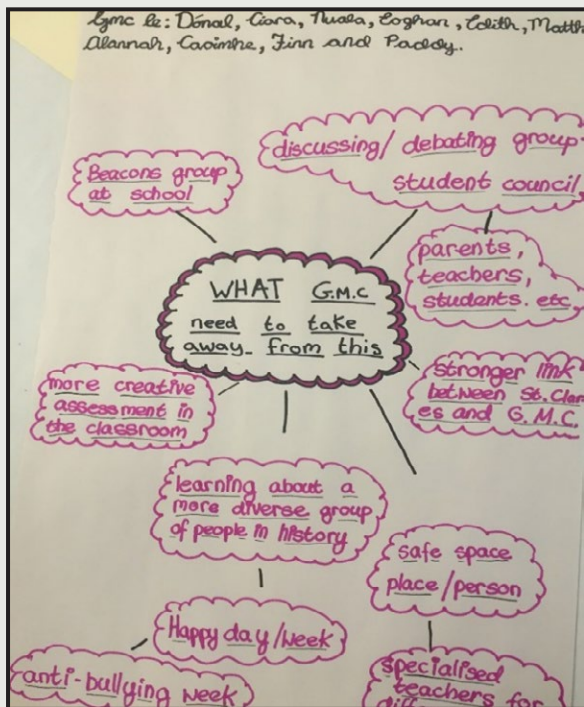 Gmc le: Dónal, Ciara, Nuala, Eoghan, Edith,
Alannah, Caoimhe, Finn and Paddy.
Beacons group
at school
discussing/ debating group
student council,
parents,
teachers,
students. etc,
WHAT G.M.C
need to take
away from this
stronger link
between St. Clar
es and G.M.C.
more creative
assessment in
the classroom
learning about a
more diverse group
of people in history
safe space
place/person
Happy day/week
anti-bullying week
specialised
teachers for